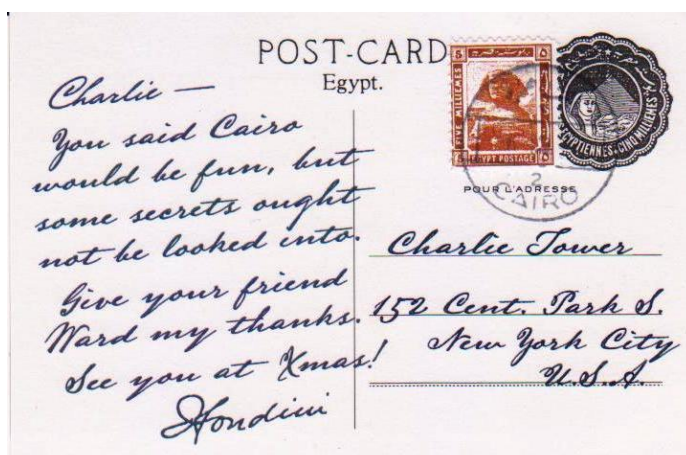 POST-CARD
Egypt.
Charlie —
You said Cairo
would be fun, but
some secrets ought
not be looked into.
Give your friend
Ward my thanks.
See you at Xmas!
Houdini
5 ٥
FIVE MILLIEMES
5 EGYPT POSTAGE ٥
EGYPTIENNES · CINQ MILLIEMES
2
CAIRO
POUR L'ADRESSE
Charlie Tower
152 Cent. Park S.
New York City
U.S.A.